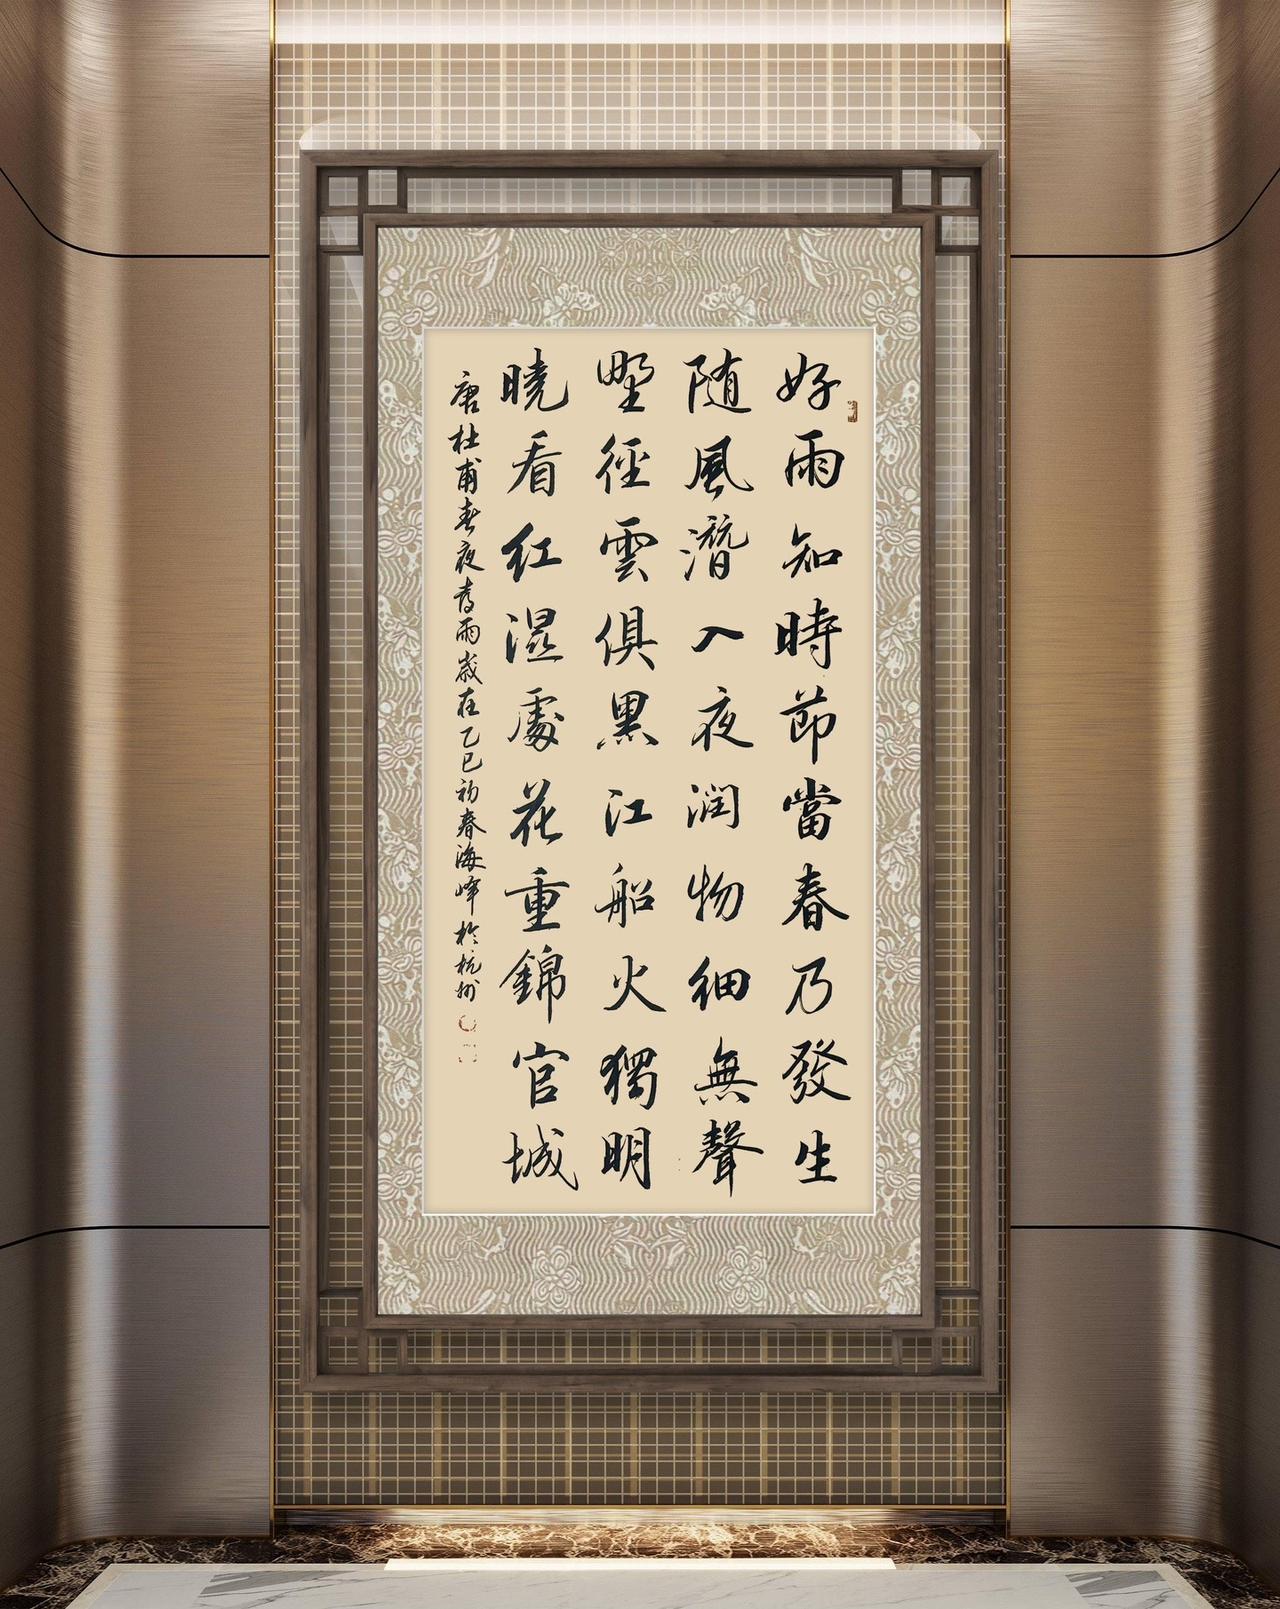 好雨知時節當春乃發生
随風潛入夜潤物細無聲
野徑雲俱黑江船火獨明
曉看红濕處花重錦官城
唐杜甫春夜喜雨歲在乙巳初春海峰於杭州